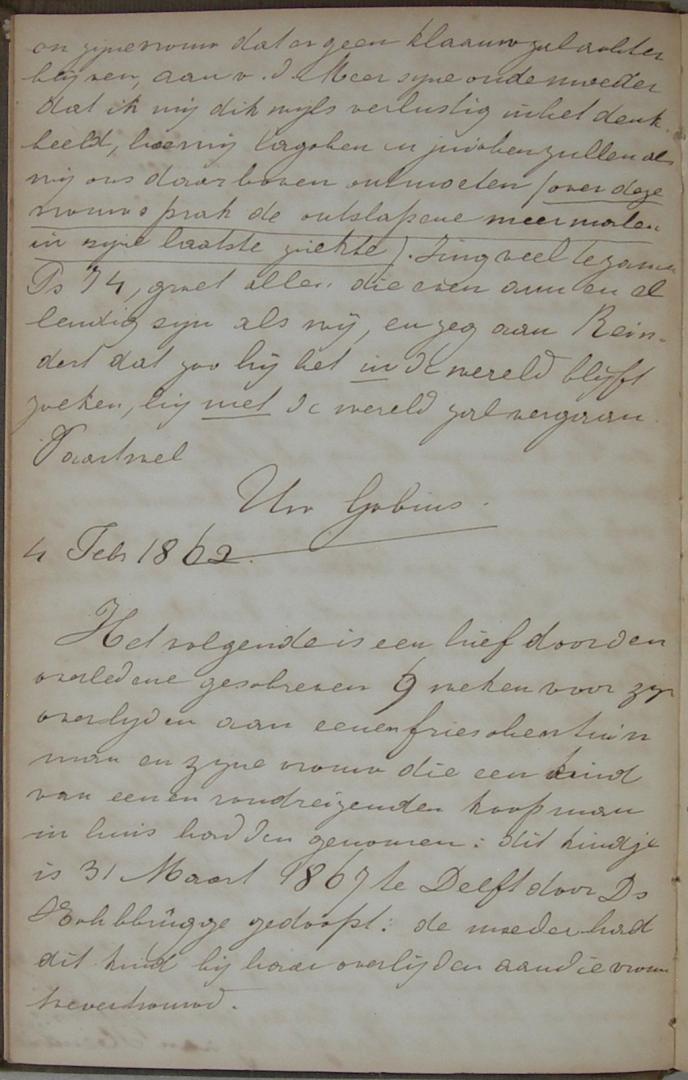 en zijne vrouw dat er geen klaauw zal achter
blijven, aan v. d Meer zijne oude moeder
dat ik mij dikwijls verlustig in het denk
beeld, hoe wij lagchen en juichen zullen als
wij ons daarboven ontmoeten (over deze
vrouw sprak de ontslapene meermalen
in zijne laatste ziekte). Zing veel tezamen
Ps 74, groet allen die even arm en el
lendig zijn als wij, en zeg aan Rein-
dert dat zoo hij het in de wereld blijft
zoeken, hij met de wereld zal vergaan.
Vaartwel
Uw Gobius.
4 Febr 1862.
Het volgende is een brief door den
overledene geschreven 9 weken voor zijn
overlijden aan eenen frieschen tuin
man en zijne vrouw die een kind
van eenen rondreizenden koopman
in huis hadden genomen: dit kindje
is 31 Maart 1867 te Delft door Ds
Kohbbrügge gedoopt: de moeder had
dit kind bij haar overlijden aan die vrouw
toevertrouwd.